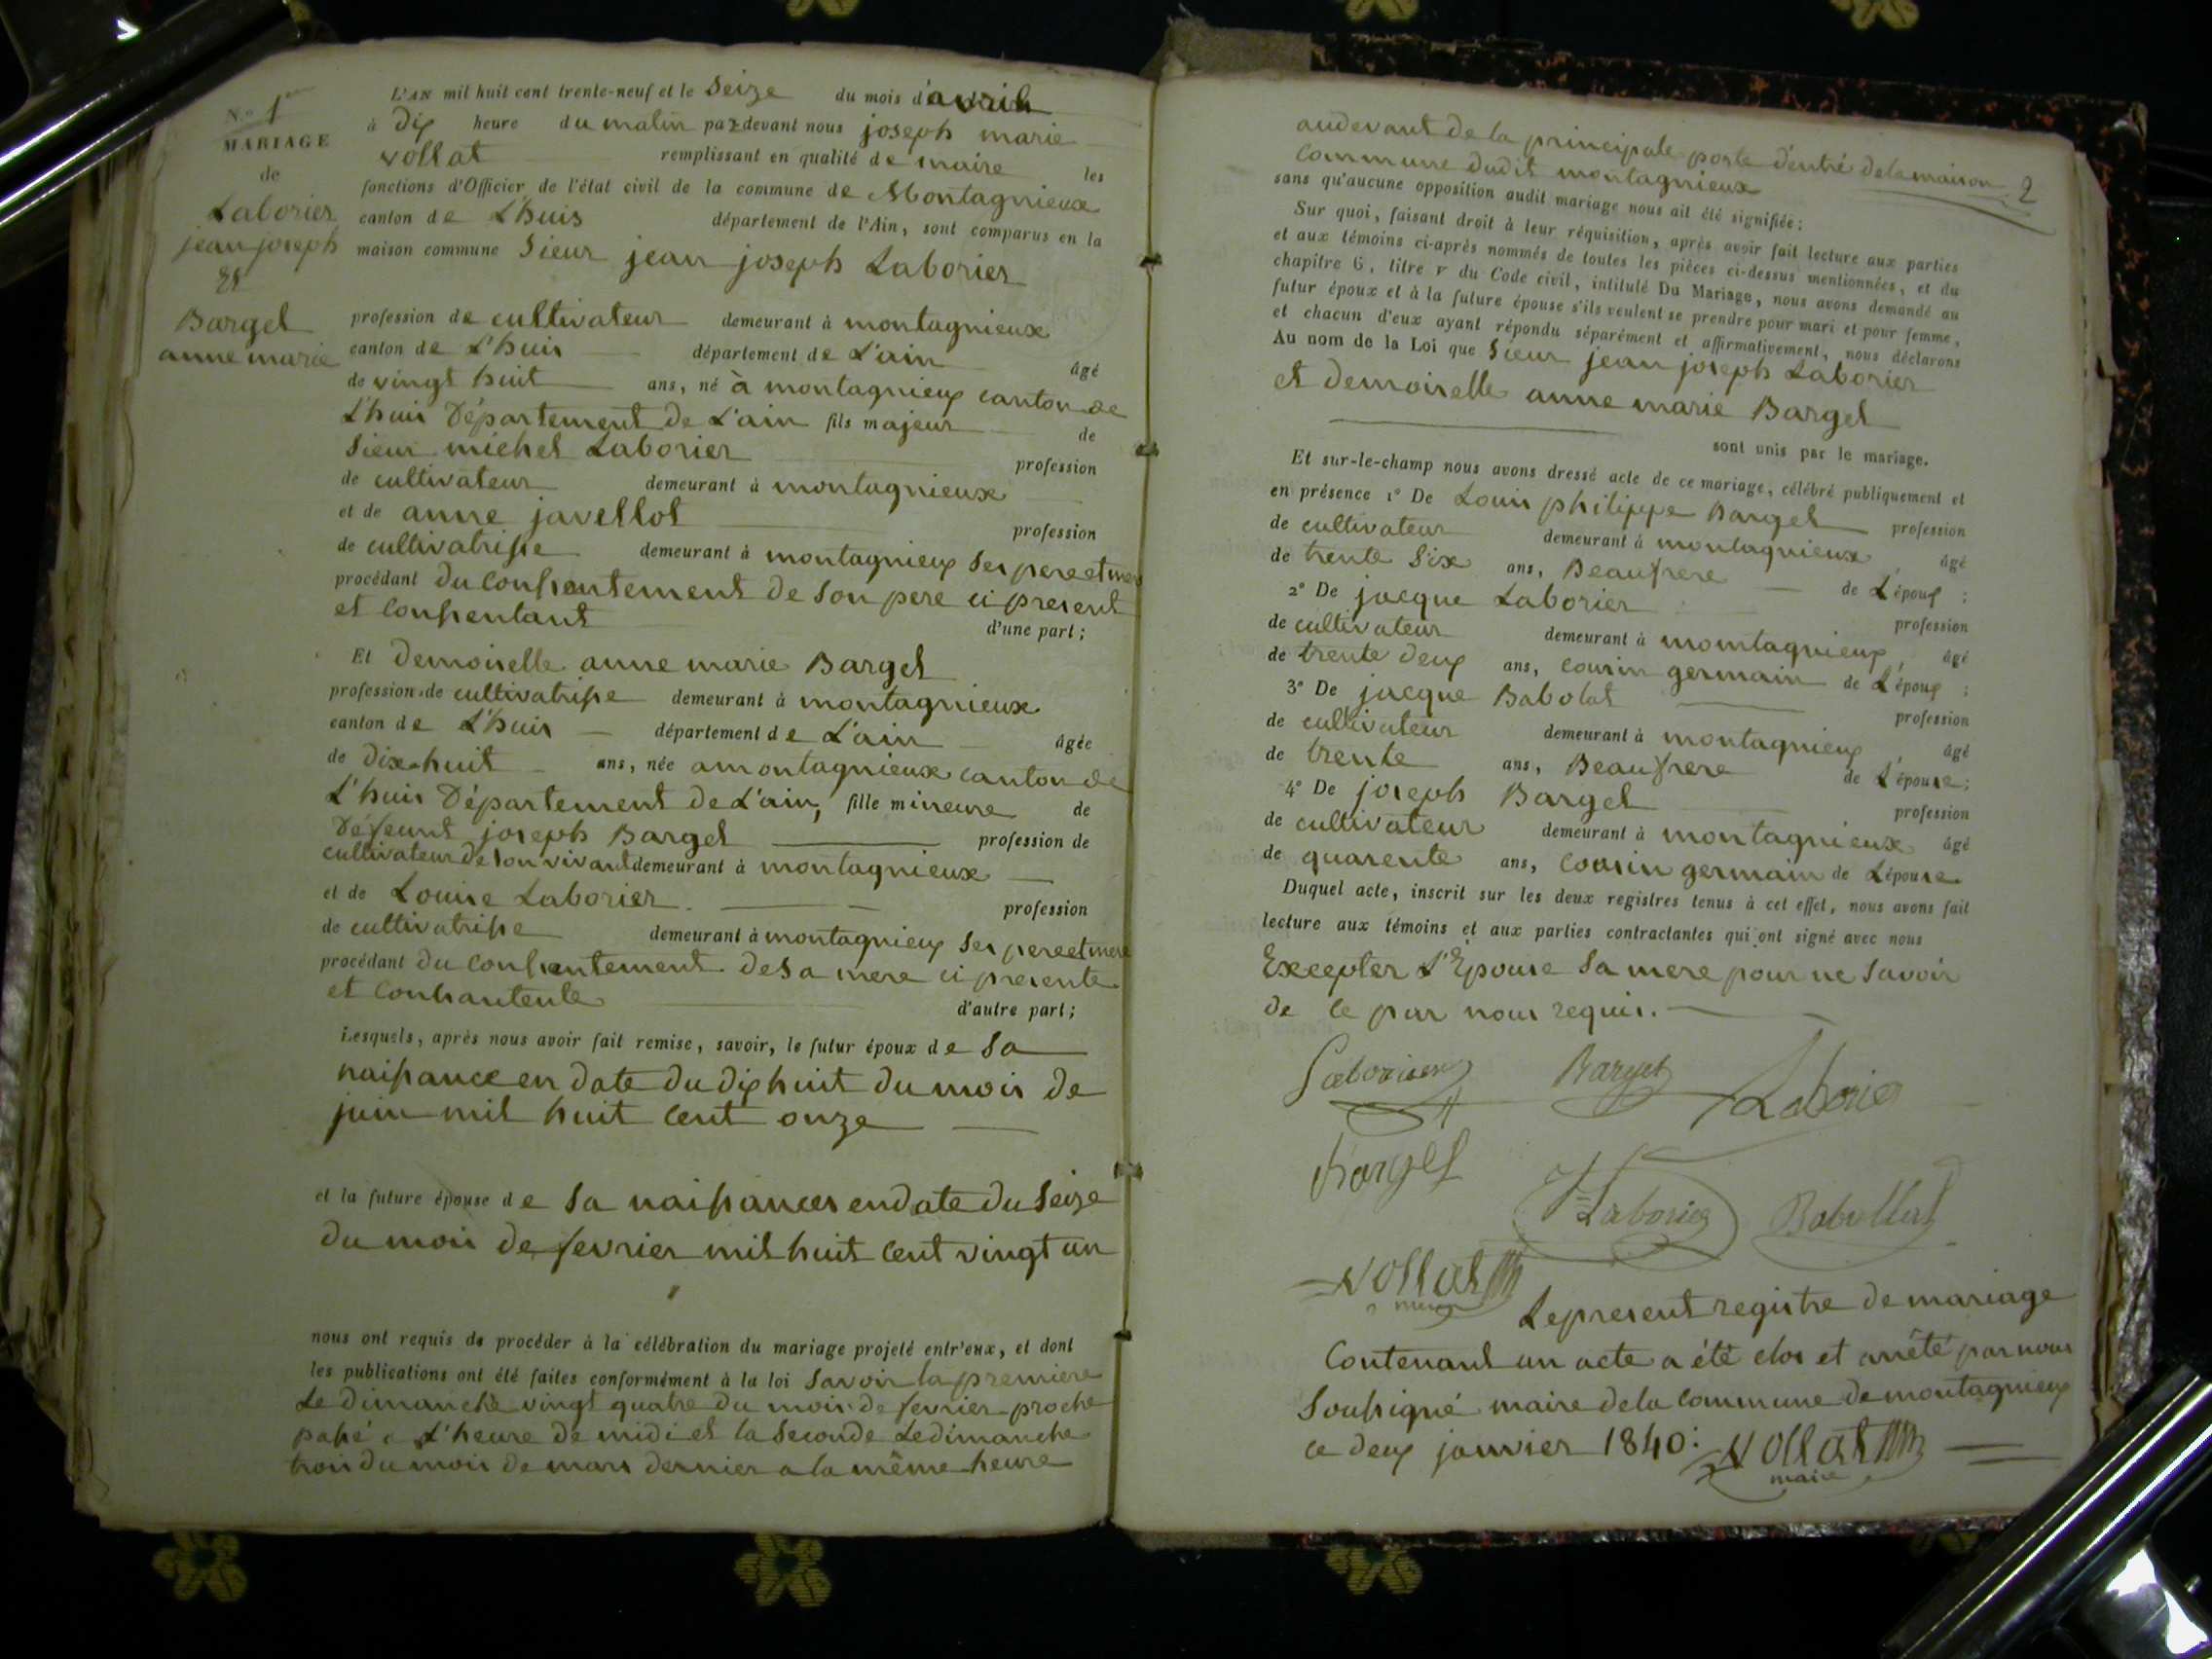 N.o 1er
MARIAGE
de
Laborier
jean joseph
&
Bargel
anne marie
L'AN mil huit cent trente-neuf et le Seize du mois d'avril
à dix heure du matin pardevant nous joseph marie
vollat remplissant en qualité de maire les
fonctions d'Officier de l'état civil de la commune de Montagnieux
canton de L'huis département de l'Ain, sont comparus en la
maison commune Sieur jean joseph Laborier
profession de cultivateur demeurant à montagnieux
canton de L'huis département de L'ain âgé
de vingt huit ans, né à montagnieux canton de
L'huis Département de L'ain fils majeur de
Sieur michel Laborier profession
de cultivateur demeurant à montagnieux
et de anne javellot profession
de cultivatrisse demeurant à montagnieux Ses pere et mere
procédant du Conssentement de Son pere ci present
et Conssentant d'une part ;
Et demoiselle anne marie Bargel
profession de cultivatrisse demeurant à montagnieux
canton de L'huis département de L'ain âgée
de Dix-huit ans, née a montagnieux canton de
L'huis Département de L'ain, fille mineure de
Défeunt joseph Bargel profession de
cultivateur de Son vivant demeurant à montagnieux
et de Louise Laborier profession
de cultivatrisse demeurant à montagnieux Ses pere et mere
procédant du Conssentement de Sa mere ci presente
et Conssantente d'autre part ;
Lesquels, après nous avoir fait remise, savoir, le futur époux de Sa
naissance en date du dix huit du mois de
juin mil huit Cent onze
et la future épouse de Sa naissances en date du Seize
du mois de fevrier mil huit Cent vingt un
nous ont requis de procéder à la célébration du mariage projeté entr'eux, et dont
les publications ont été faites conformément à la loi Savoir la premiere
Le dimanche vingt quatre du mois de fevrier proche
passé a L'heure de midi et la Seconde Le dimanche
trois du mois de mars dernier a la même heure
2
audevant de la principale porte d'entré de la maison
Commune dudit montagnieux
sans qu'aucune opposition audit mariage nous ait été signifiée ;
Sur quoi, faisant droit à leur réquisition, après avoir fait lecture aux parties
et aux témoins ci-après nommés de toutes les pièces ci-dessus mentionnées, et du
chapitre 6, titre v du Code civil, intitulé Du Mariage, nous avons demandé au
futur époux et à la future épouse s'ils veulent se prendre pour mari et pour femme,
et chacun d'eux ayant répondu séparément et affirmativement, nous déclarons
Au nom de la Loi que Sieur jean joseph Laborier
et demoiselle anne marie Bargel
sont unis par le mariage.
Et sur-le-champ nous avons dressé acte de ce mariage, célébré publiquement et
en présence 1° De Louis philippe Bargel profession
de cultivateur demeurant à montagnieux, âgé
de trente Six ans, Beaufrere de L'époux ;
2° De jacque Laborier profession
de cultivateur demeurant à montagnieux, âgé
de trente deux ans, cousin germain de L'époux ;
3° De jacque Babolat profession
de cultivateur demeurant à montagnieux, âgé
de trente ans, Beaufrere de L'épouse ;
4° De joseph Bargel profession
de cultivateur demeurant à montagnieux âgé
de quarente ans, Cousin germain de L'épouse
Duquel acte, inscrit sur les deux registres tenus à cet effet, nous avons fait
lecture aux témoins et aux parties contractantes qui ont signé avec nous
Excepter L'Epouse Sa mere pour ne Savoir
de ce par nous requis.
Laborier Bargel Laborier
Bargel
Laborier Babollat
Vollat
maire
Le present registre de mariage
Contenant un acte a été clos et arrêté par nous
Soussigné maire de la Commune de montagnieux
ce deux janvier 1840 : Vollat
maire